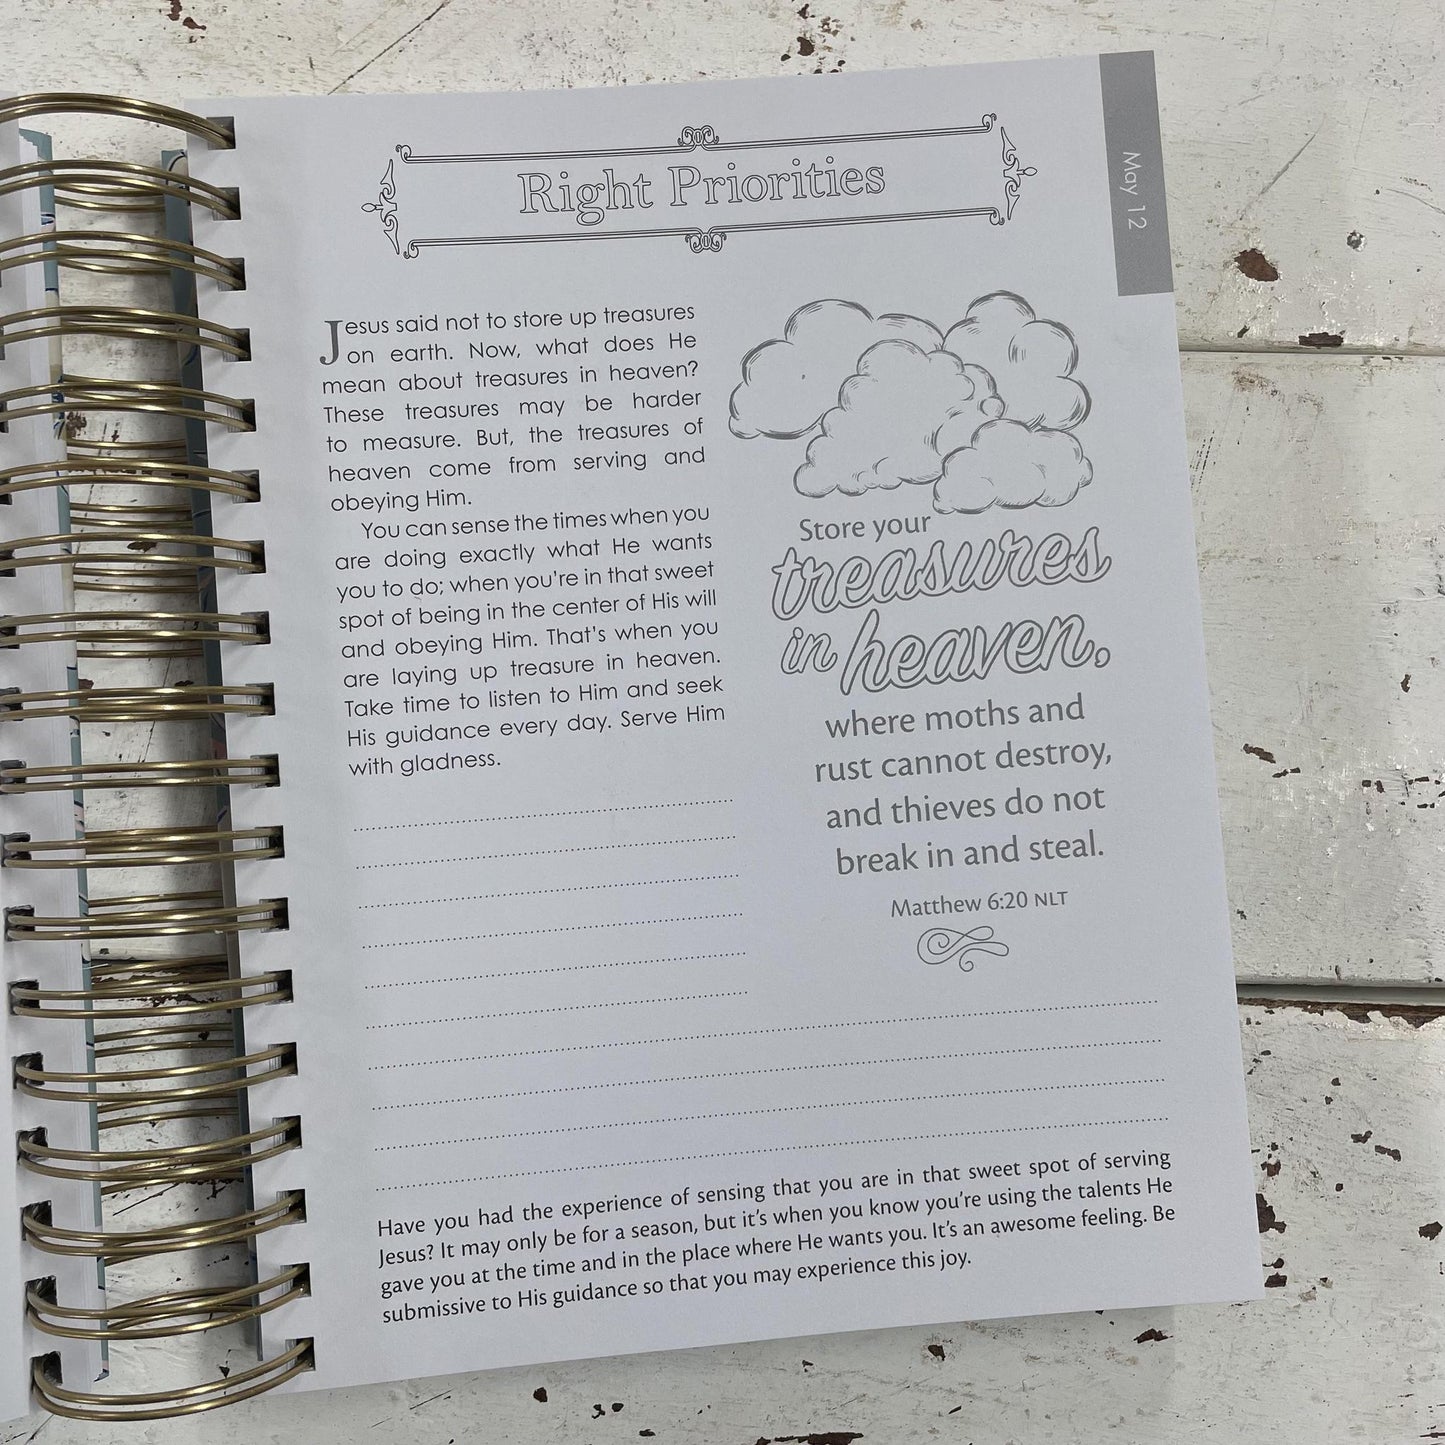 May 12
Right Priorities
Jesus said not to store up treasures
on earth. Now, what does He
mean about treasures in heaven?
These treasures may be harder
to measure. But, the treasures of
heaven come from serving and
obeying Him.
You can sense the times when you
are doing exactly what He wants
you to do; when you're in that sweet
spot of being in the center of His will
and obeying Him. That's when you
are laying up treasure in heaven.
Take time to listen to Him and seek
His guidance every day. Serve Him
with gladness.
Store your
treasures
in heaven,
where moths and
rust cannot destroy,
and thieves do not
break in and steal.
Matthew 6:20 NLT
Have you had the experience of sensing that you are in that sweet spot of serving
Jesus? It may only be for a season, but it's when you know you're using the talents He
gave you at the time and in the place where He wants you. It's an awesome feeling. Be
submissive to His guidance so that you may experience this joy.